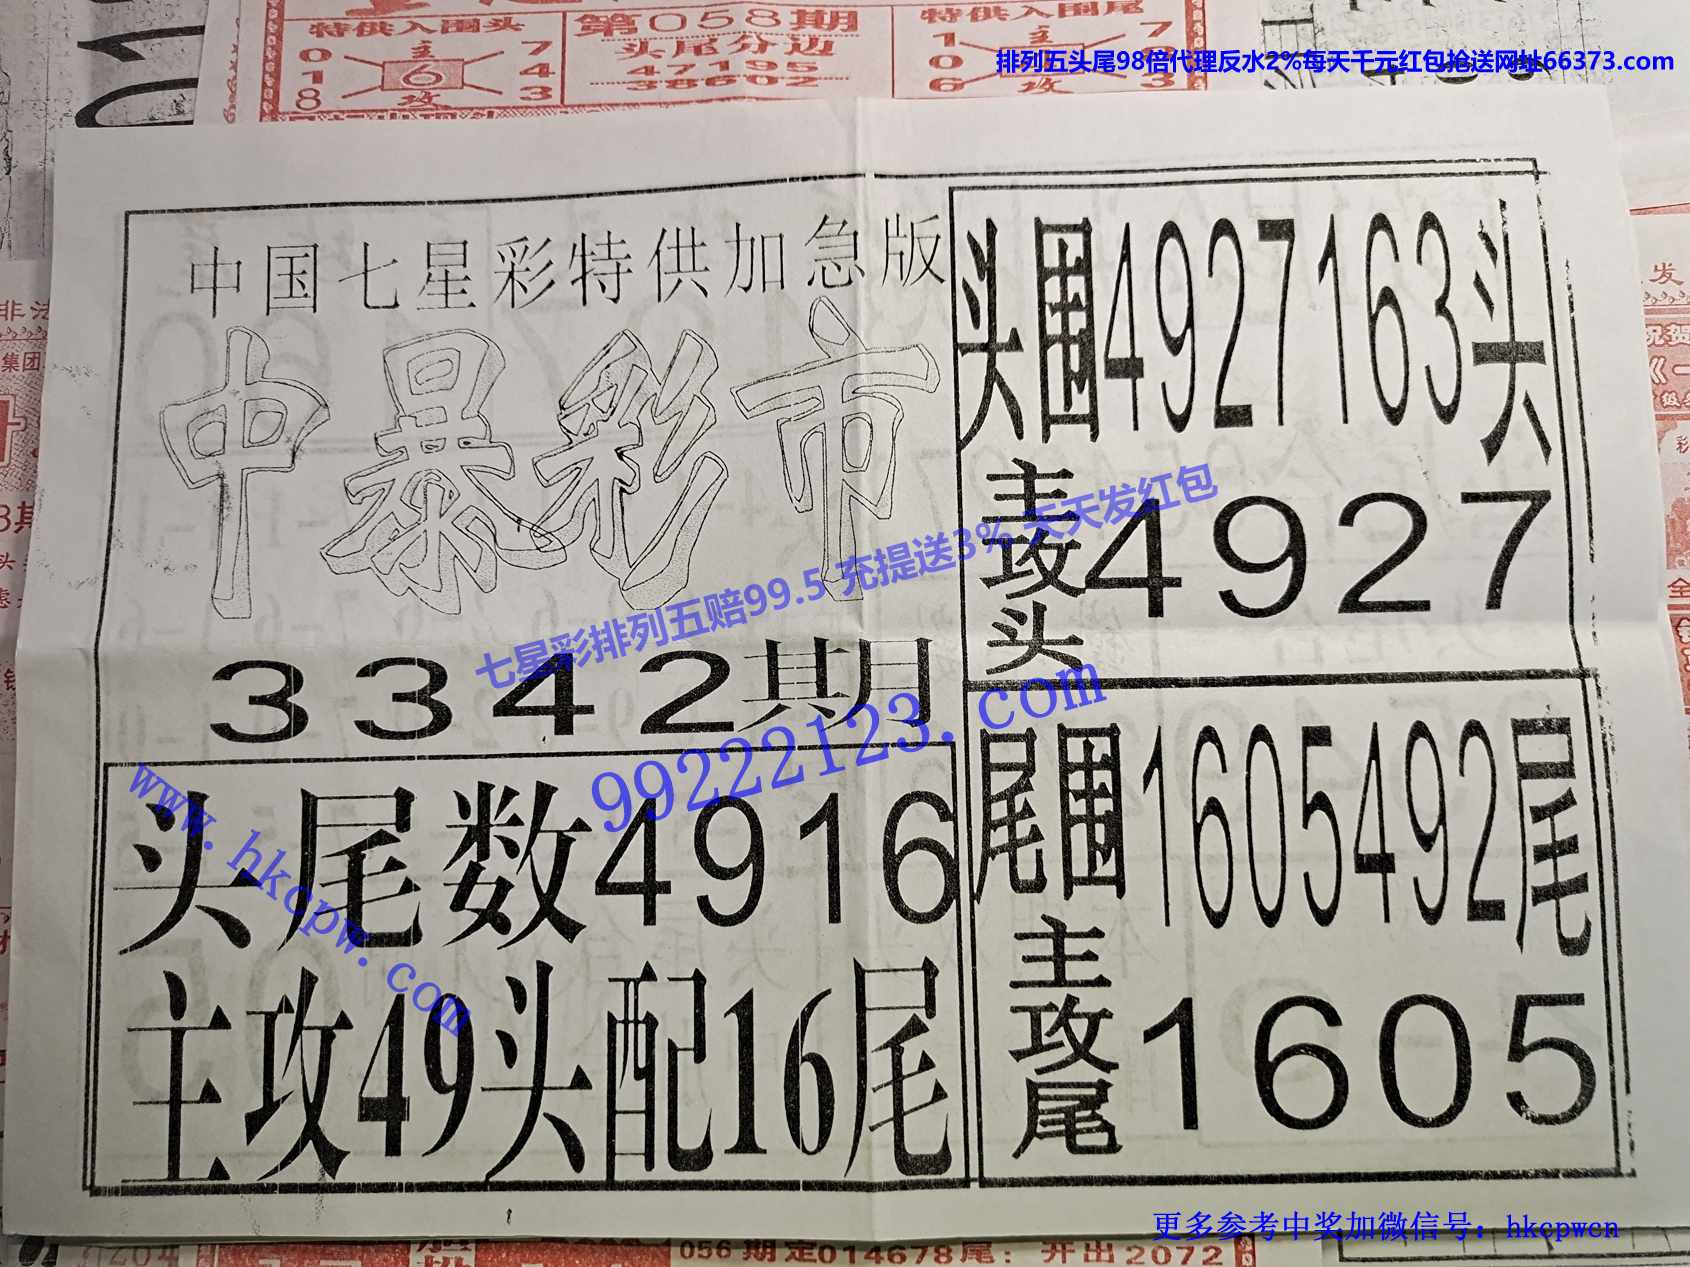 特供入围头
第058期
特供入围尾
头尾分边
主
0
7
6
1
4
47195
38602
8
攻
3
1
7
0
6
攻
3
排列五头尾98倍代理反水2%每天千元红包抢送网址66373.com
中国七星彩特供加急版
中暴彩市
3342期
头围4927163头
主攻头4927
七星彩排列五赔99.5 充提送3% 天天发红包
99222123.com
www.hkcpw.com
头尾数4916
主攻49头配16尾
尾围1605492尾
主攻尾1605
更多参考中奖加微信号：hkcpwcn
056期定014678尾：开出2072
非法
集团
发
祝贺